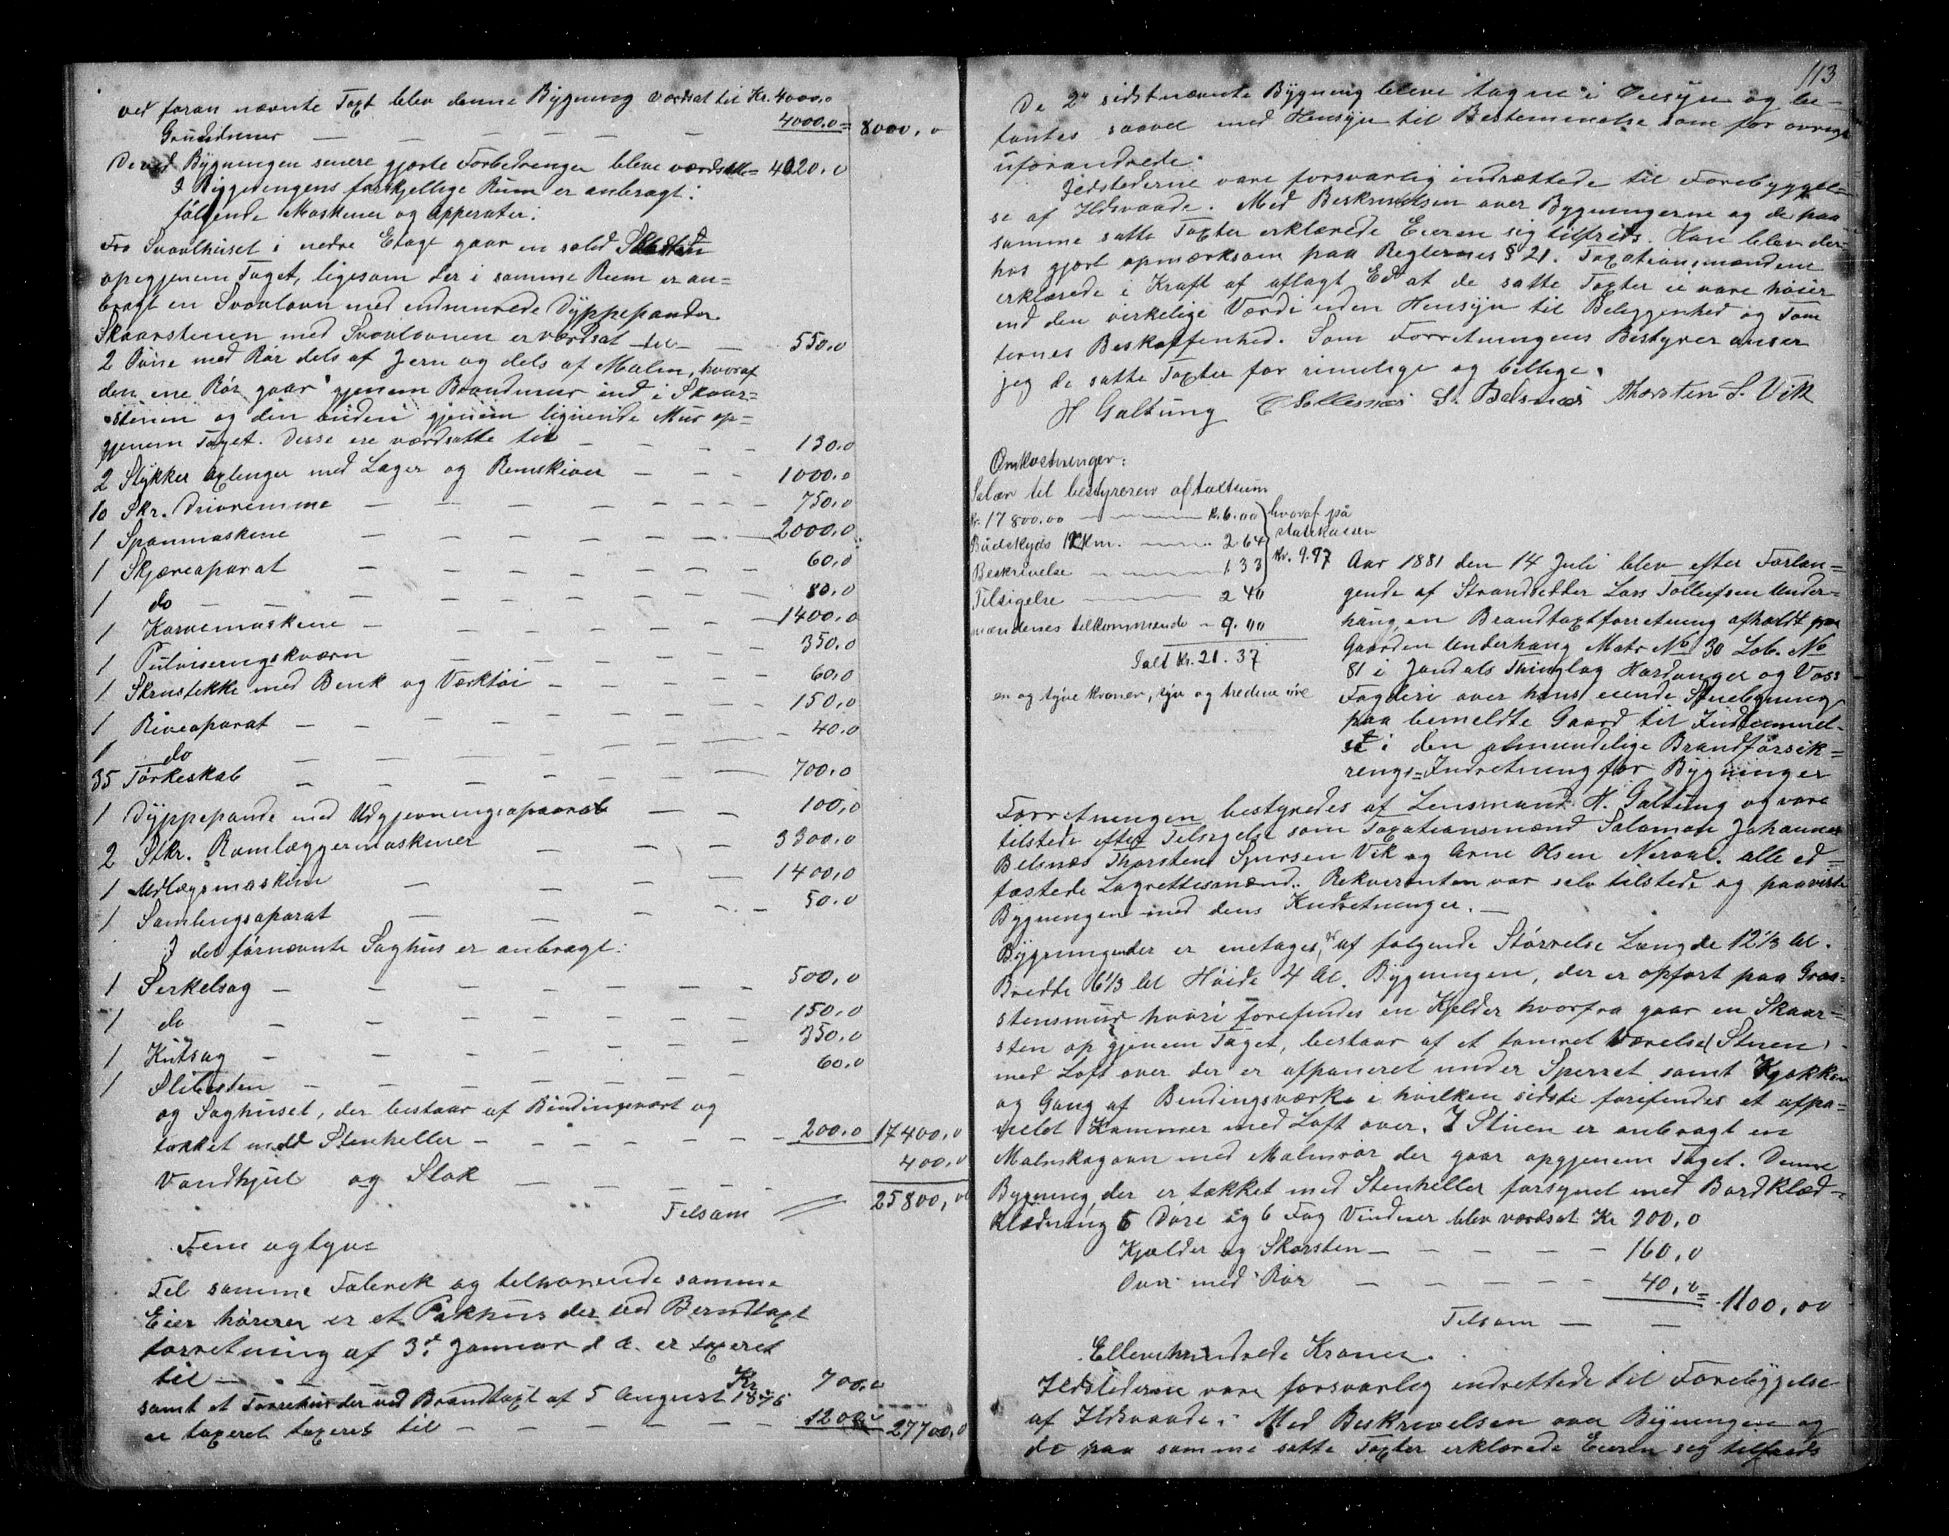 ved foran nævnte Taxt blev denne Bygning værdsat til Kr. 4000,0
Grundmur — — — — — 4000,0 = 8000,0
De ved Bygningen senere gjorte Forbedringer bleve værdsatte = 4020,0
I Byggningens forskjellige Rum er anbragt:
følgende Maskener og Apperater:
Fra Svovlhuset i nedre Etage gaar en solid
op igjenem Taget, ligesom der i samme Rum er an=
bragt en Svovlovn med indmurede Dyppepander
Skaarstenen med Svovlovnen er værdsat til — — 550,0
2 Ovne med Rør dels af Jern og dels af Malm, hvoraf
den ene Rør gaar gjenem Brandmur ind i Skaar=
stenen og den anden gjenem lignende Mur op=
gjenem Taget. Disse ere værdsatte til — — — 130,0
2 Stykker Axlinger med Lager og Remskiver — — — 1000,0
10 Stk. Drivremme — — — — — 750,0
1 Spanmaskene — — — — — 2000,0
1 Skjæreaparat — — — — — 60,0
1 do — — — — — 80,0
1 Karvemaskene — — — — — 1400,0
1 Pulviseringskværn — — — — 350,0
1 Skrustikke med Benk og Værktøi — — — — 60,0
1 Riveaparat — — — — — 150,0
1 do — — — — — 40,0
35 Tørkeskab — — — — — 700,0
1 Dyppepande med Udgjevningsaparat — — 100,0
2 Stkr. Ramlæggermaskener — — — 3300,0
1 Udlægsmaskine — — — — 1400,0
1 Samlingsaparat — — — — 50,0
I det førnævnte Saghus er anbragt:
1 Serkelsag — — — — — 500,0
1 do — — — — — 150,0
1 Kutsag — — — — — 350,0
1 Slibesten — — — — — 60,0
og Saghuset, der bestaar af Bindingsværk og
tækket med Stenheller — — — — 200,0 17400,0
Vandhjul og Stok — — — — 400,0
Tilsam 25800,00
Fem og tyve
Til samme Fabrik og tilhørende samme
Eier hører er et Pakhus der ved Berndtaxt
forretning af 3d Januar d. A. er taxeret
til — — — Kr 700,0
samt et Tørrehus der ved Brandtaxt af 5 August 1876
er taxeret taxeret til — — — — 1200,0 27700,0
113
De 2de sidstnævnte Bygning bleve tagne i Øiesyn og be=
fantes saavel med Hensyn til Bestemmelse som for øvrigt
uforandrede.
Ildstederne vare forsvarlig indrættede til Forebyggel=
se af Ildsvaade. Med Beskrivelsen over Bygningerne og de paa
samme satte Taxter erklærede Eieren sig tilfreds. Han blev der=
hos gjort opmærksom paa Reglernes § 21. Taxationsmændene
erklærede i Kraft af aflagt Ed at de satte Taxter ei vare høier
end den virkelige Værdi uden Hensyn til Beleggenhed og Tom
ternes Beskaffenhed. Som Forretningens Bestyrer anser
jeg de satte Taxter for rimelige og billige.
H Galtung S. Belsnæs Thorsten S. Vik
Omkostninger:
Salær til bestyreren af taxtsum
Kr. 17800.00 — — kr. 6.00 hvoraf på
Budskyds 12 Km. — — 2 64 statskassen
Beskrivelse — — 1 33 kr. 9.97
Tilsigelse — — 2 40
mændenes tilkommende — 9.00
Ialt kr. 21.37
en og tyve kroner, syv og tredeve øre
Aar 1881 den 14 Juli blev efter Forlan=
gende af Strandsidder Lars Tollefsen Under=
haug, en Brandtaxtforretning afholdt paa
Gaarden Underhaug Matr No 30 Løb. No
81 i Jondals Thinglag Hardanger og Voss
Fogderi over hans eiende Stuebygning
paa bemeldte Gaard til Indlemmel-
se i den almindelige Brandforsik=
rings=Indretning for Bygninger
Forretningen bestyredes af Lensmand H. Galtung og vare
tilstede efter Tilsigelse som Taxationsmænd Salamon Johannes
Belsnæs Thorsten Sjursen Vik og Arne Olsen Neraal. alle ed=
fæstede Lagrettesmænd. Rekverenten var selv tilstede og paaviste
Bygningen med dens Indretninger. —
Bygningen der er enetages, er af følgende Størrelse Længde 12 1/3 al.
Bredde 16 1/3 al Høide 4 al. Bygningen, der er opført paa Graa=
stensmur hvori forefindes en Kjelder hvorfra gaar en Skaar=
sten op gjenem Taget, bestaar af et tømret Værelse (Stuen)
med Loft over der er afpaneret under Sperret samt Kjøkken
og Gang af Bindingsværk i hvilken sidste forefindes et afpa=
nelet Kammer med Loft over. I Stuen er anbragt en
Malmkagovn med Malmrør der gaar opgjenem Taget. Denne
Bygning der er tækket med Stenheller forsynet med Bordklæd=
klædning 6 Døre og 6 Fag Vinduer blev værdsat Kr 900,0
Kjælder og Skorsten — — — — — 160,0
Ovn med Rør — — — — — 40,0 = 1100,00
Tilsam — —
Ellevehundrede Kroner.
Ildstederne vare forsvarlig indrettede til Forebyggelse
af Ildsvaade. Med Beskrivelsen over Bygningen og
de paa samme satte Taxter erklærede Eieren sig tilfreds